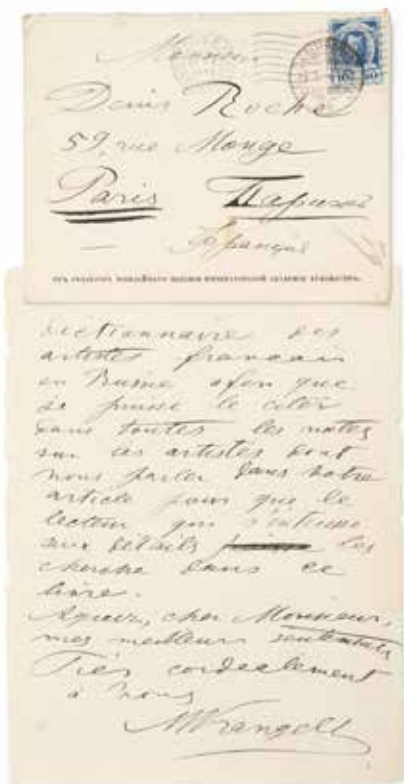 Monsieur
Denis Roche
59, rue Monge
Paris Парижъ
Франція
dictionnaire des
artistes français
en Russie afin que
je puisse le citer
dans toutes les notes
sur les artistes dont
vous parlez dans votre
article pour que le
lecteur qui s'intéresse
aux détails les
cherche dans ce
livre.
Agréez, cher Monsieur,
mes meilleurs sentiments
Très cordialement
à vous
MWrangell